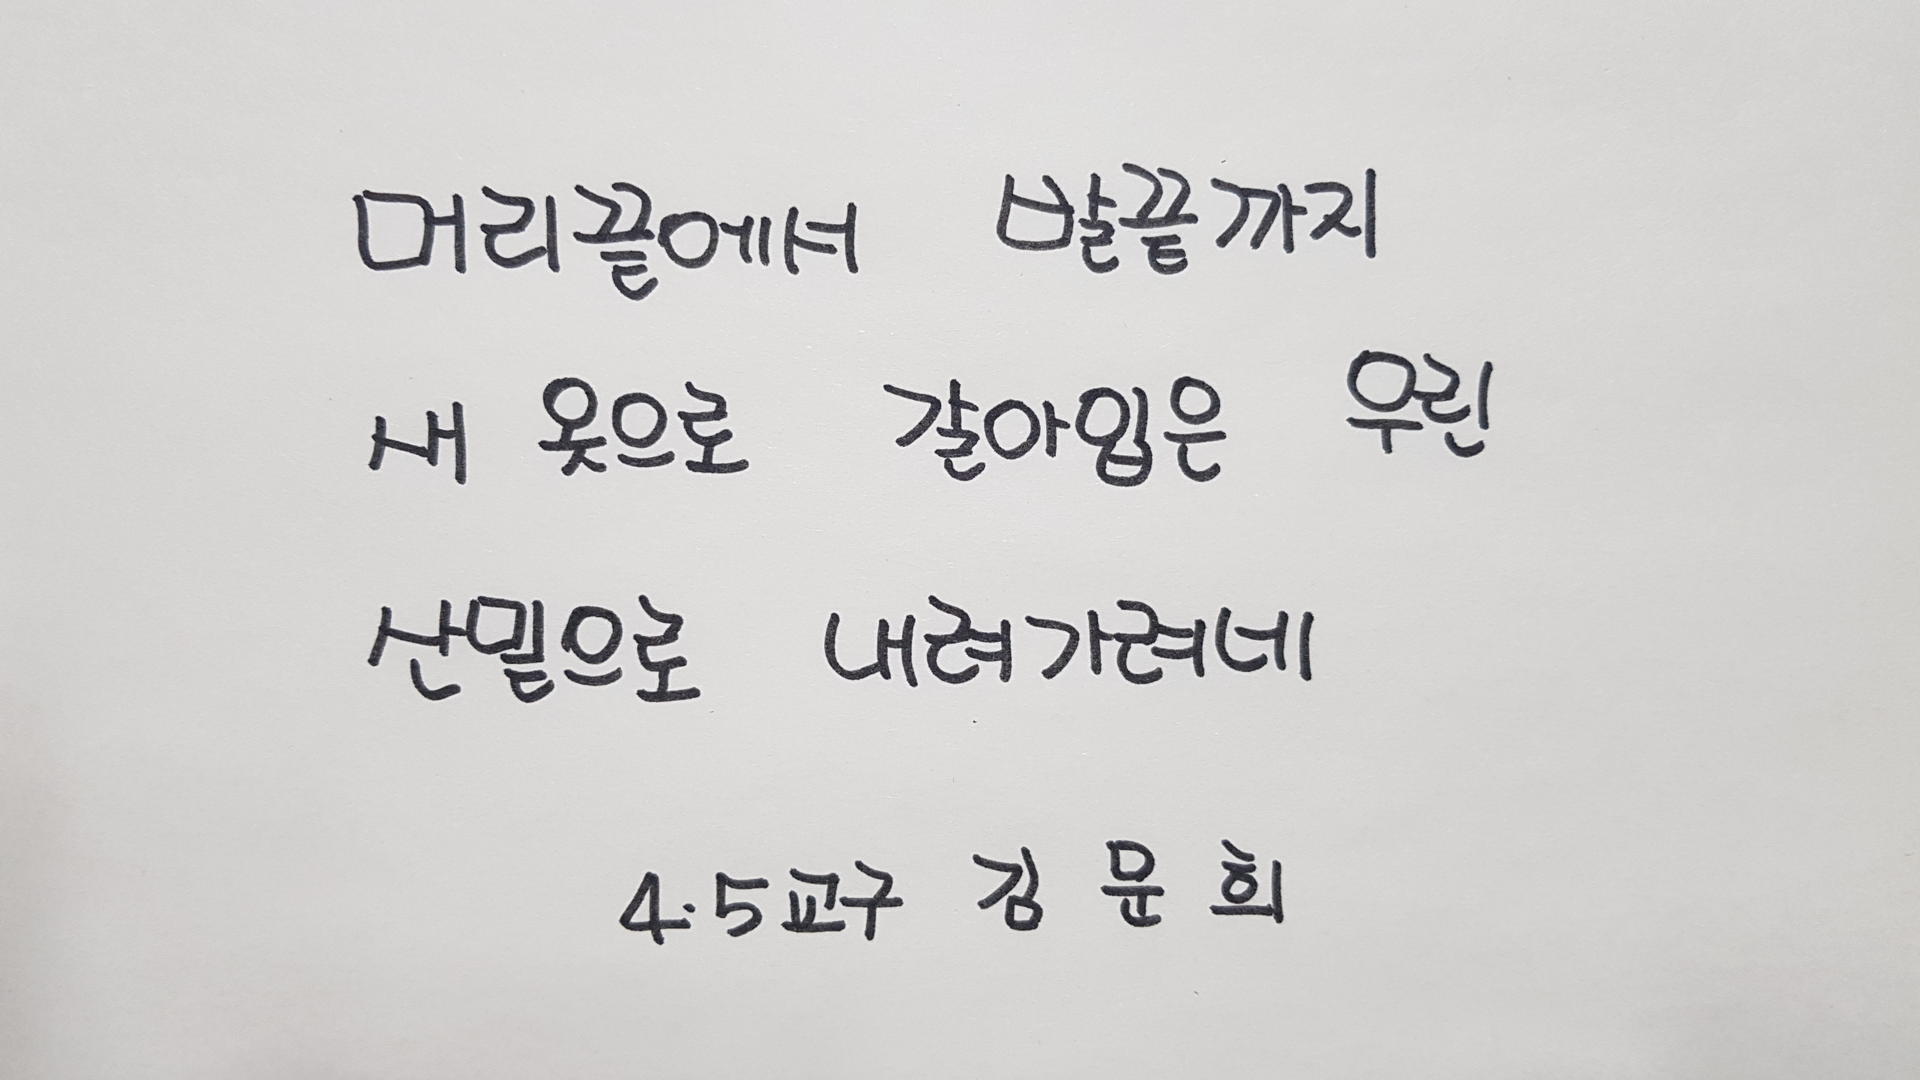 머리끝에서 발끝까지
새 옷으로 갈아입은 우린
산밑으로 내려가려네
4.5교구 김 문 희